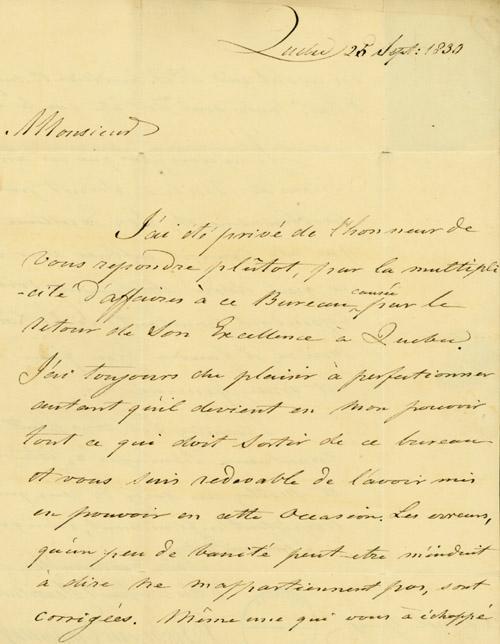 Quebec 25 Sept: 1830
Monsieur
J'ai été privé de l'honneur de
vous repondre plûtot, par la multipli
-cité d'affaires à ce Bureau causée par le
retour de Son Excellence à Quebec.
J'ai toujours du plaisir à perfectionner
autant qu'il devient en mon pouvoir
tout ce qui doit sortir de ce bureau
et vous suis redevable de l'avoir mis
en pouvoir en cette occasion. Les erreurs,
qu'un peu de vanité peut-etre m'induit
à dire ne m'appartiennent pas, sont
corrigées. Même une qui vous a échappé